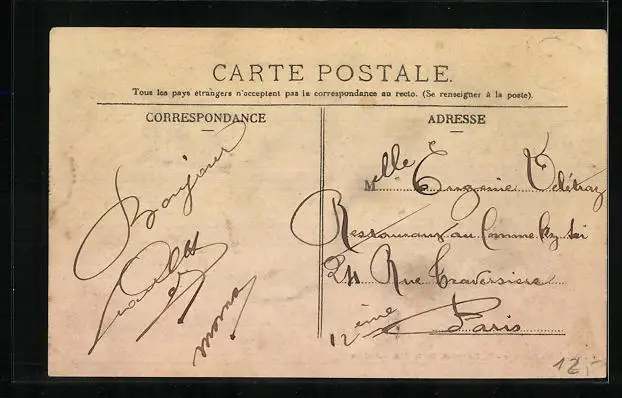 CARTE POSTALE.
Tous les pays étrangers n'acceptent pas la correspondance au recto. (Se renseigner à la poste).
CORRESPONDANCE
Bonjour
ADRESSE
Melle Eugénie
Restaurant au
24 Rue Traversière
12ème Paris
12,-